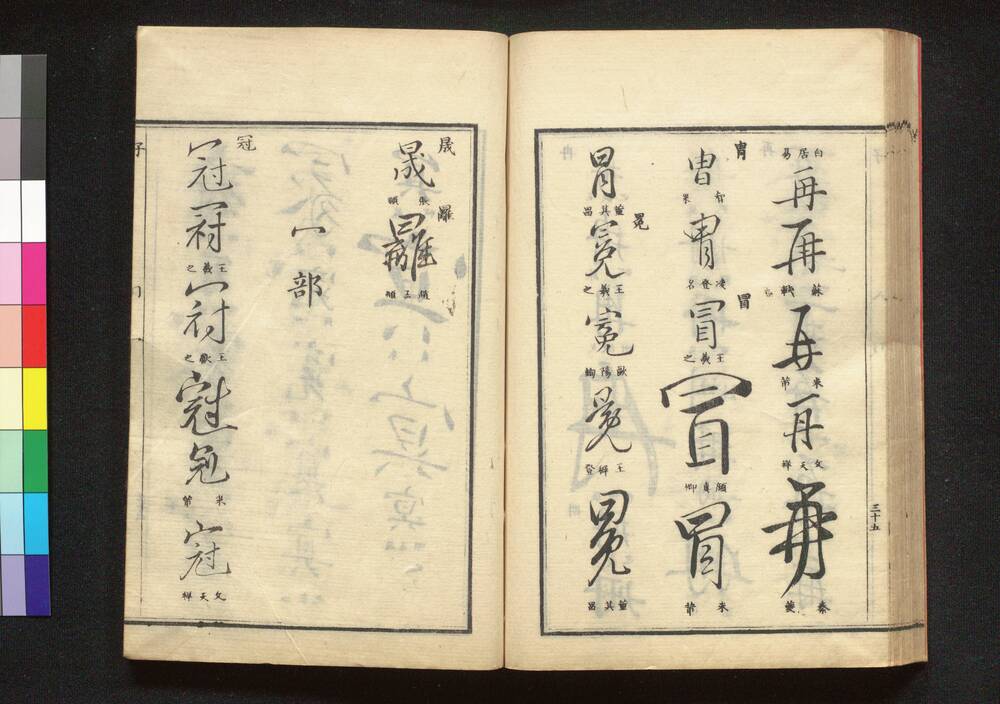 三十五
再
白居易
再
蘇軾
再
米芾
再
文天祥
再
胄
胄
智果
胄
凌登名
冒
冒
王羲之
冒
顏真卿
冒
米芾
冒
董其昌
冕
冕
王羲之
冕
歐陽詢
冕
王穉登
冕
董其昌
晟
晟
張顛
冖部
冠
冠
冠
王羲之
冠
王獻之
冠
冠
米芾
冠
文天祥